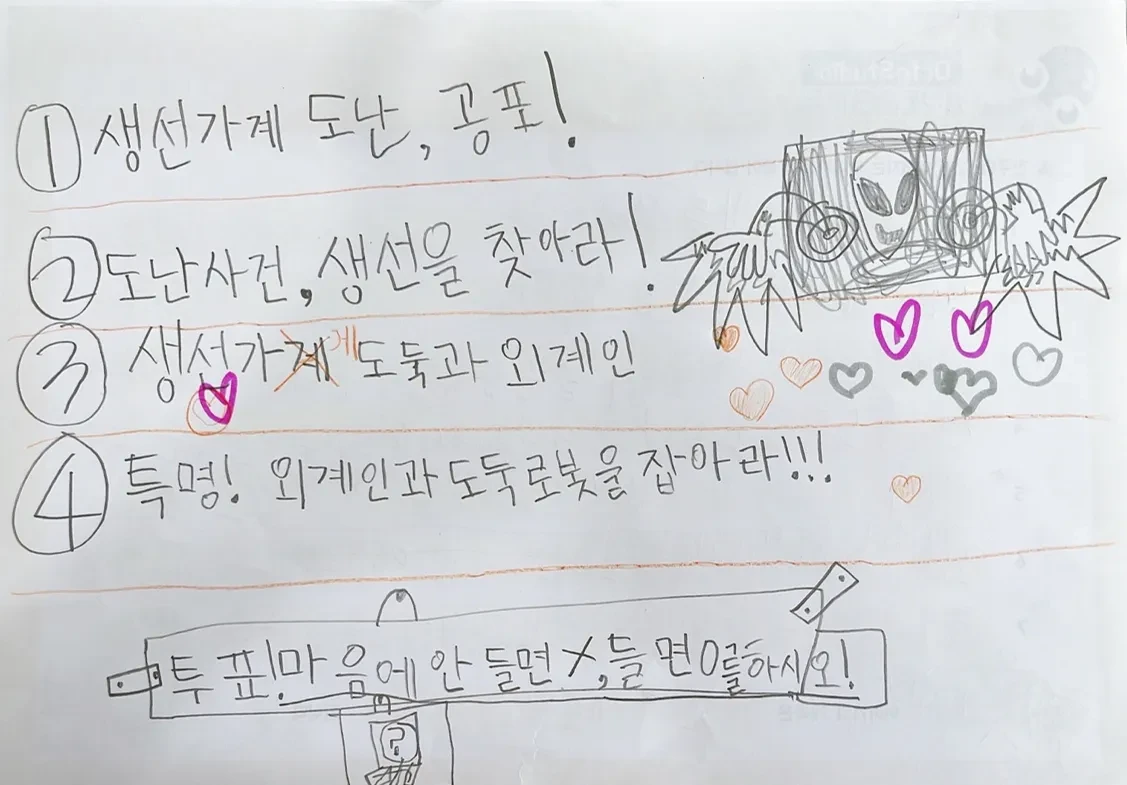 ① 생선가계 도난, 공포!
② 도난사건, 생선을 찾아라!
③ 생선가게 도둑과 외계인
④ 특명! 외계인과 도둑로봇을 잡아라!!!
투표! 마음에 안 들면 X, 들면 O를하시오!
?